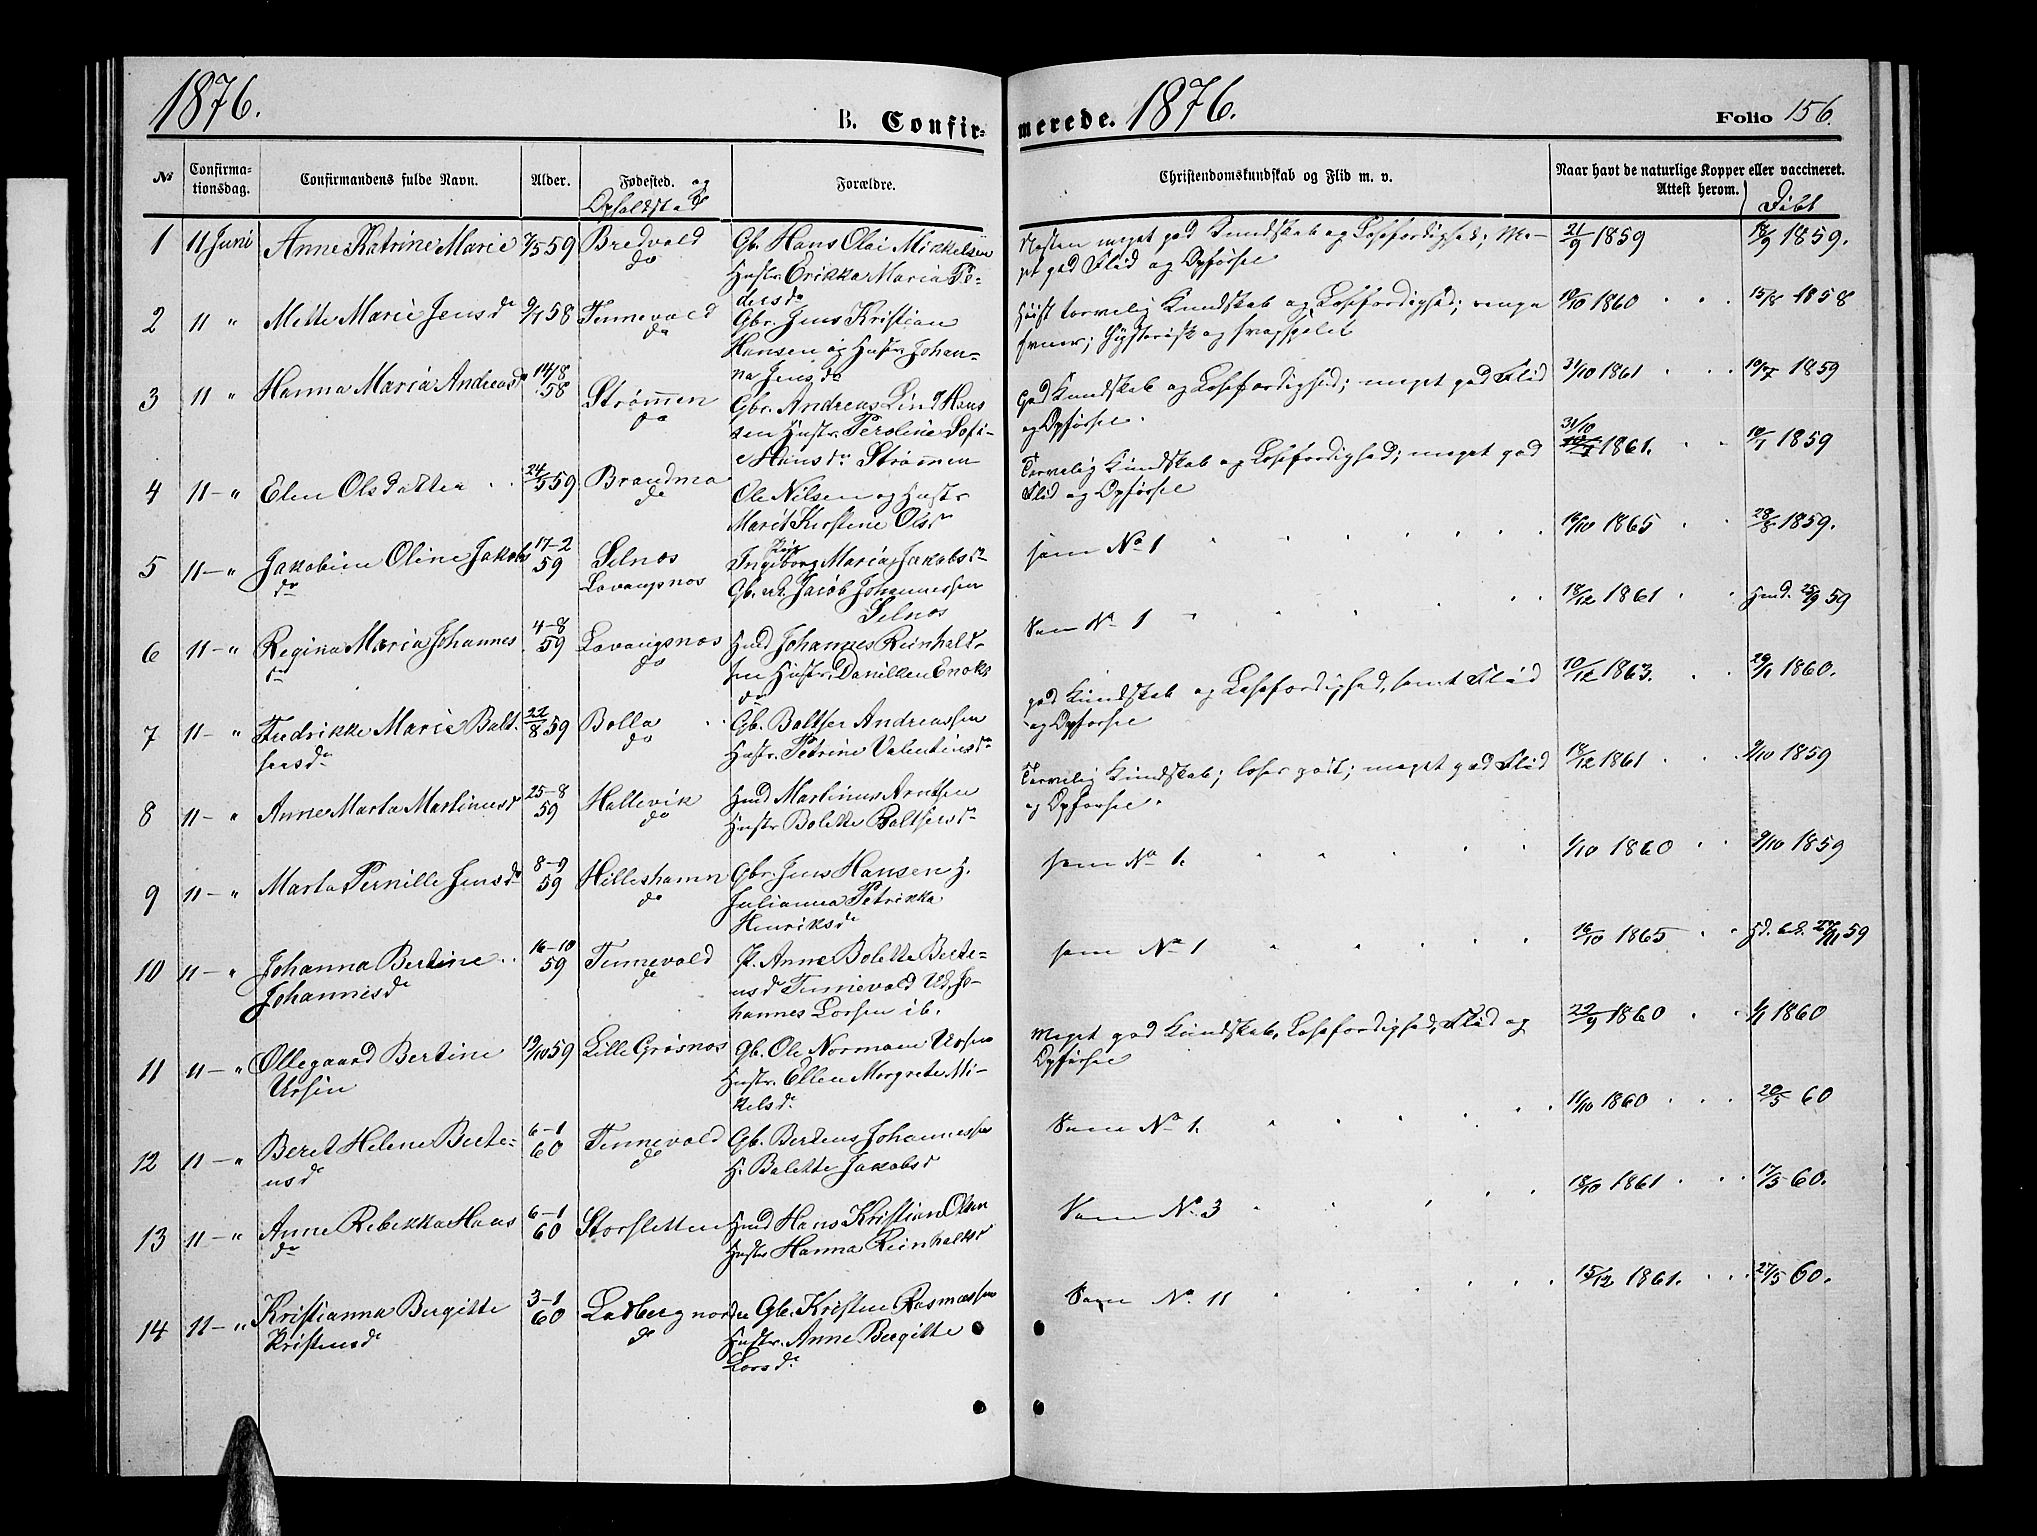 1876.
B. Confir-
merede. 1876.
Folio 156.
№
Confirma-
tionsdag.
Confirmandens fulde Navn.
Alder.
Fødested. og
Opholdsted
Forældre.
Christendomskundskab og Flid m. v.
Naar havt de naturlige Kopper eller vaccineret.
Attest herom.
Døbt
1 11 Juni Anne Katrine Marie 7/5 59 Bredvold Gb. Hans Olai Mikkelsen
do Hustr. Erikka Maria Pe-
dersdr
Næsten meget god Kundskab og Læsefærdighed; Me-
get god Flid og Opførsel
21/9 1859 18/9 1859.
2 11 " Mette Marie Jensdr 9/1 58 Tennevold Gbr. Jens Kristian
do Hansen og Hustr. Johan-
na Jensdr
Høist tarvelig Kundskab og Læsefærdighed; ringe
1860 15/8 1858
3 11 " Hanna Maria Andreasdr 14/8 58 Strømmen Gbr. Andreas Lind Han
do sen Hustr. Peroline Sofi-
e Hansdr Strømmen
god Kundskab og Læsefærdighed; meget god Flid
og Opførsel.
31/10 1861 1859
4 11 - " Elen Olsdatter 24/5 59 Brandmo Ole Nilsen og Hustr
do Marit Kirstine Olsdr
Tarvelig Kundskab og Læsefærdighed; meget god
Flid og Opførsel
31/10 1861. 10/1 1859
5 11 - " Jakobine Oline Jakobs 17-2 59 Selnes Pige Ingeborg Maria Jakobsdr
dr Lavangsnes Gb. Jacob Johannessen
Selnes
som No 1
16/10 1865 28/8 1859.
6 11 - " Regina Maria Johannes 4-8 59 Lavangsnes Hmd Johannes Reinhald-
dr do sen Hustr. Danillen Enoks
dr
Som No 1
18/12 1861 Hmd. 25/9 59
7 11 - " Fredrikke Marie Balt- 22/8 59 Bolla Gb. Baltser Andreassen
sersdr do Hustr. Petrine Valentinsdr
god Kundskab og Læsefærdighed, samt Flid
og Opførsel
10/12 1863. 29/1 1860.
8 11 - " Anne Marta Martinusdr 25-8 59 Hallevik Hmd Martinus Arntsen
do Hustr Bolette Baltsersdr
Tarvelig Kundskab; læser godt; meget god Flid
og Opførsel.
18/12 1861 9/10 1859
9 11 - " Marta Pernille Jensdr 8-9 59 Hilleshamn Gbr. Jens Hansen H.
do Julianna Petrikka
Henriksdr
som No 1.
1/10 1860 9/10 1859
10 11 - " Johanna Bertine 16-10 59 Tennevold P. Anne Bolette Berte-
Johannesdr do usdr Tennevold Ud, Jo-
hannes Larsen ib.
som No 1
16/10 1865 59
11 11 - " Øllegaard Bertine 19/10 59 Lille Grøsnes Gb. Ole Normann Ursin
Ursin Hustr. Ellen Margrete Mi-
kelsdr
Meget god Kundskab, Læsefærdighed, Flid og
Opførsel
22/9 1860 1/1 1860
12 11 - " Beret Helene Berte- 6-1 60 Tennevold Gb. Berteus Johannessen
usdr do H. Bolette Jakobsd
Som No 1.
11/10 1860 20/5 60
13 11 - " Anne Rebekka Hans 6-1 60 Storsletten Hmd Hans Kristian Olsen
dr Hustr Hanna Reinhaldsd
Som No 3
18/10 1861 17/5 60.
14 11 - " Kristianna Bergitte 3-1 60 Ladberg nordre Gb. Kristen Rasmussen
Kristensdr do Hustr. Anne Bergitte
Larsdr
Som No 11
15/12 1861. 27/5 60.